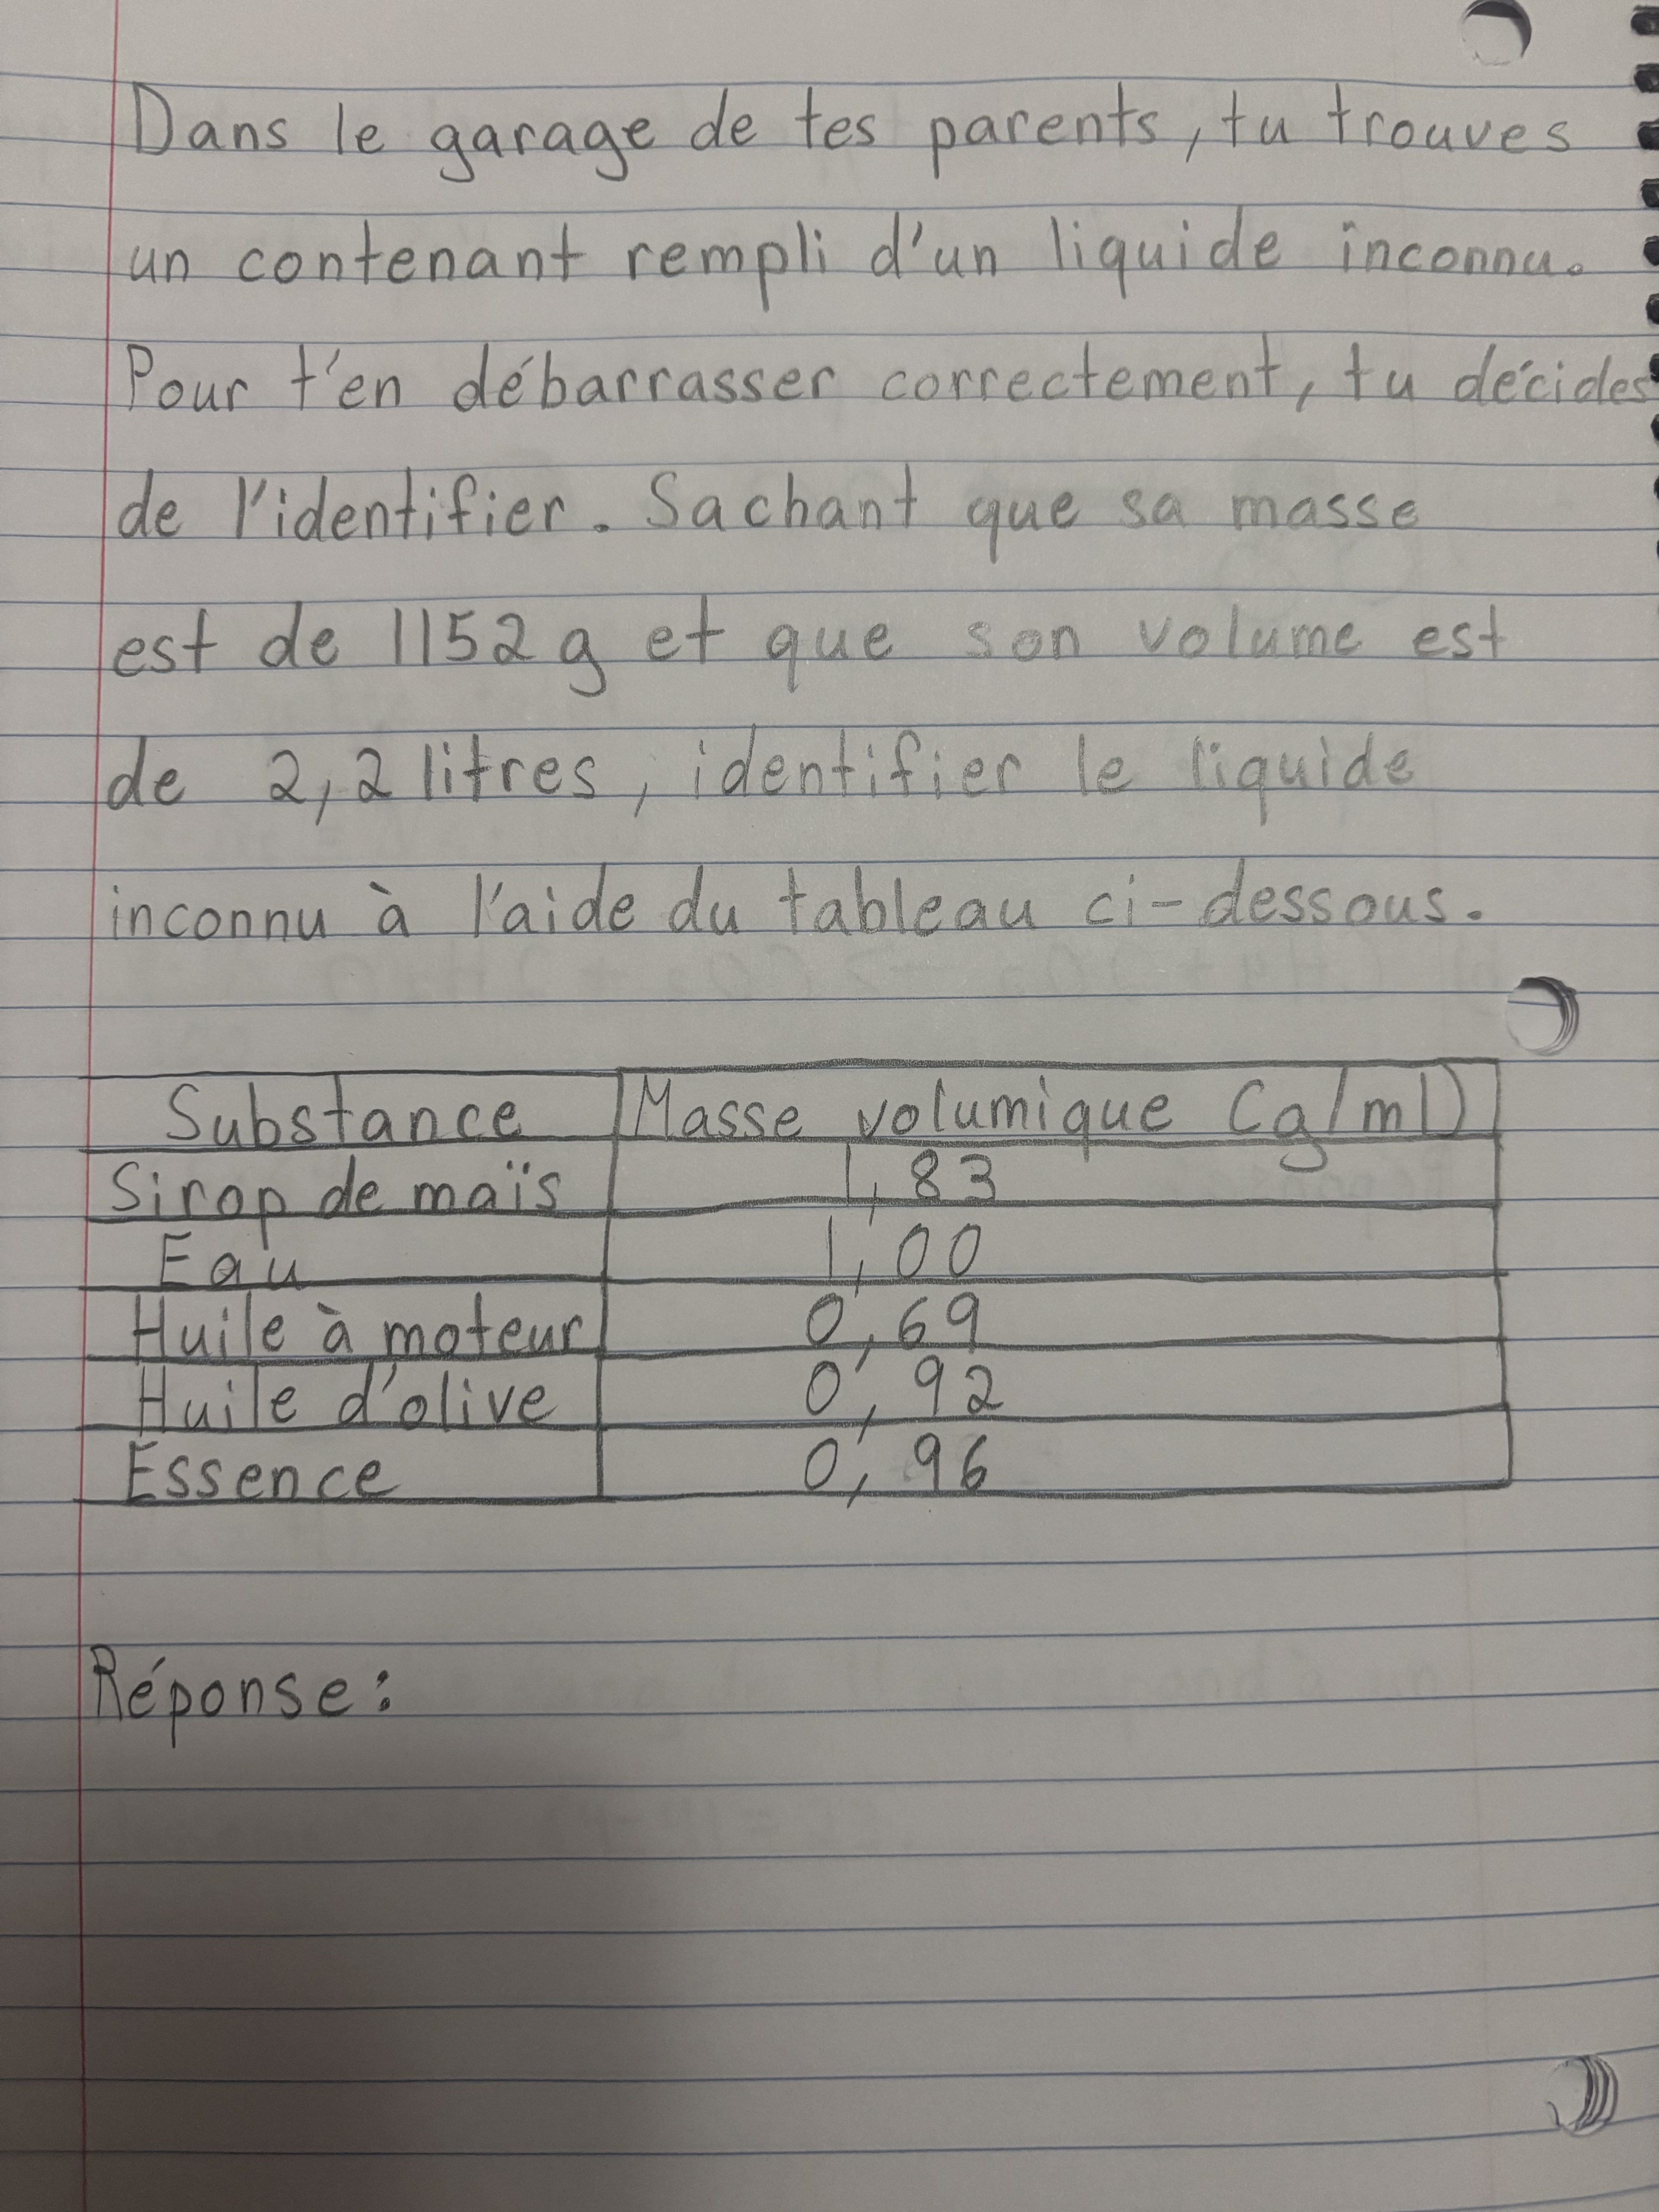 Dans le garage de tes parents, tu trouves
un contenant rempli d'un liquide inconnu.
Pour t'en débarrasser correctement, tu décides
de l'identifier. Sachant que sa masse
est de 1152 g et que son volume est
de 2,2 litres, identifier le liquide
inconnu à l'aide du tableau ci-dessous.
Substance Masse volumique (g/ml)
Sirop de maïs 1,83
Eau 1,00
Huile à moteur 0,69
Huile d'olive 0,92
Essence 0,96
Réponse: